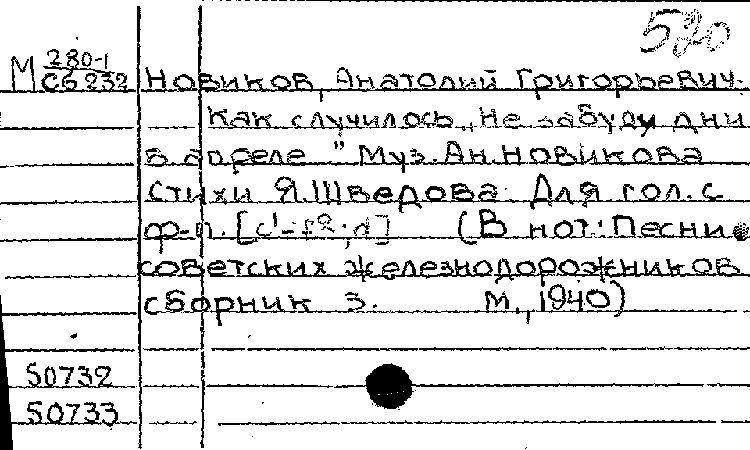 520
М 280-1
Сб 232 Новиков, Анатолий Григорьевич.
Как случилось „Не забуду дни
в апреле" Муз. Ан. Новикова
Стихи Я. Шведова. Для гол. с
ф-п. [c¹-f²; d] (В нот: Песни
советских железнодорожников
сборник 3. М., 1940)
50732
50733